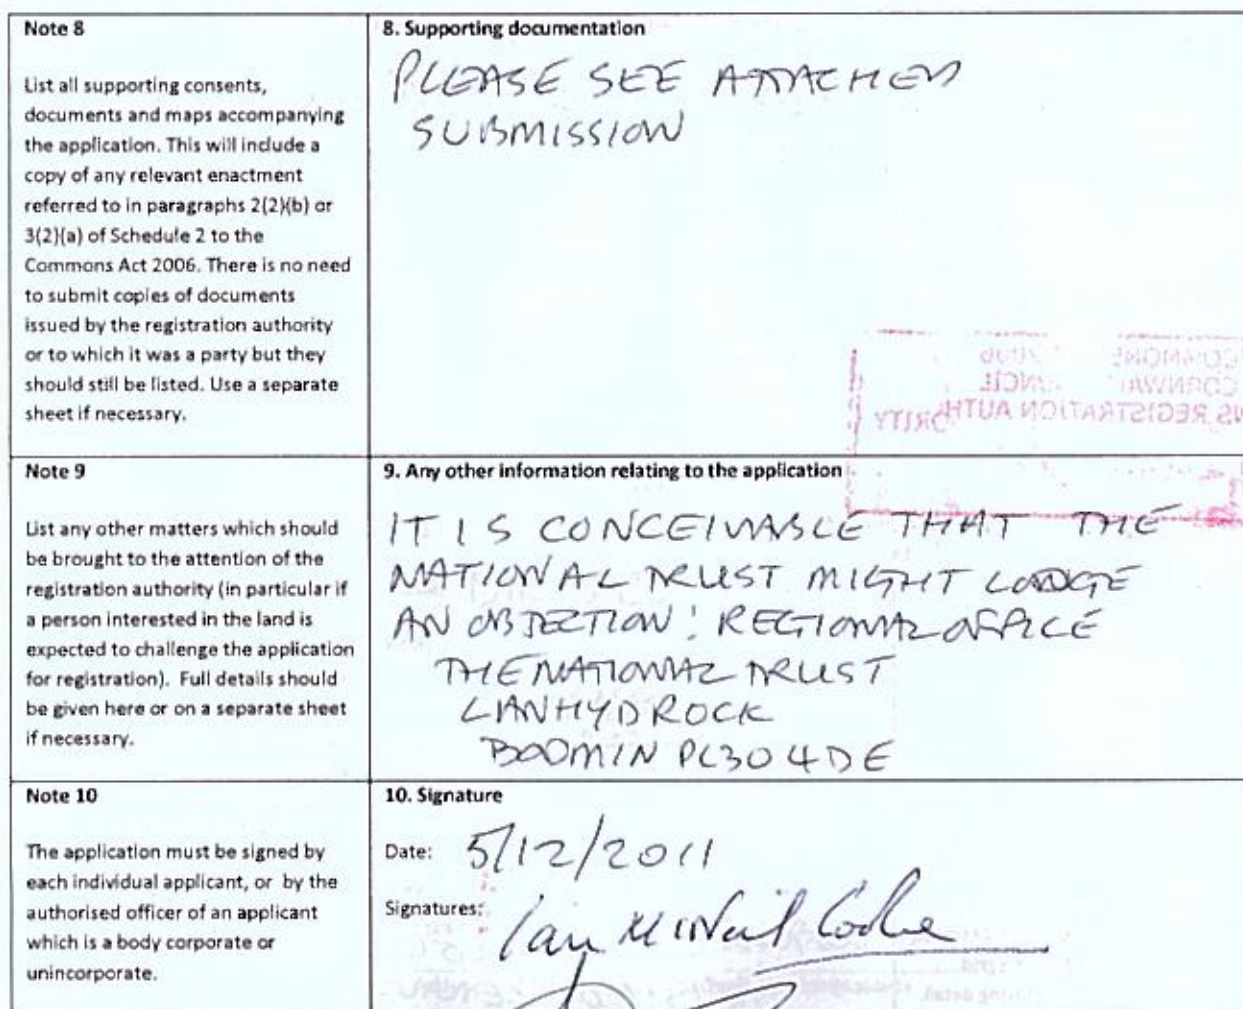 Note 8
List all supporting consents,
documents and maps accompanying
the application. This will include a
copy of any relevant enactment
referred to in paragraphs 2(2)(b) or
3(2)(a) of Schedule 2 to the
Commons Act 2006. There is no need
to submit copies of documents
issued by the registration authority
or to which it was a party but they
should still be listed. Use a separate
sheet if necessary.
8. Supporting documentation
PLEASE SEE ATTACHED
SUBMISSION
Note 9
List any other matters which should
be brought to the attention of the
registration authority (in particular if
a person interested in the land is
expected to challenge the application
for registration). Full details should
be given here or on a separate sheet
if necessary.
9. Any other information relating to the application
IT IS CONCEIVABLE THAT THE
NATIONAL TRUST MIGHT LODGE
AN OBJECTION: REGIONAL OFFICE
THE NATIONAL TRUST
LANHYDROCK
BODMIN PL30 4DE
Note 10
The application must be signed by
each individual applicant, or by the
authorised officer of an applicant
which is a body corporate or
unincorporate.
10. Signature
Date: 5/12/2011
Signatures: Ian McNeil Cooke